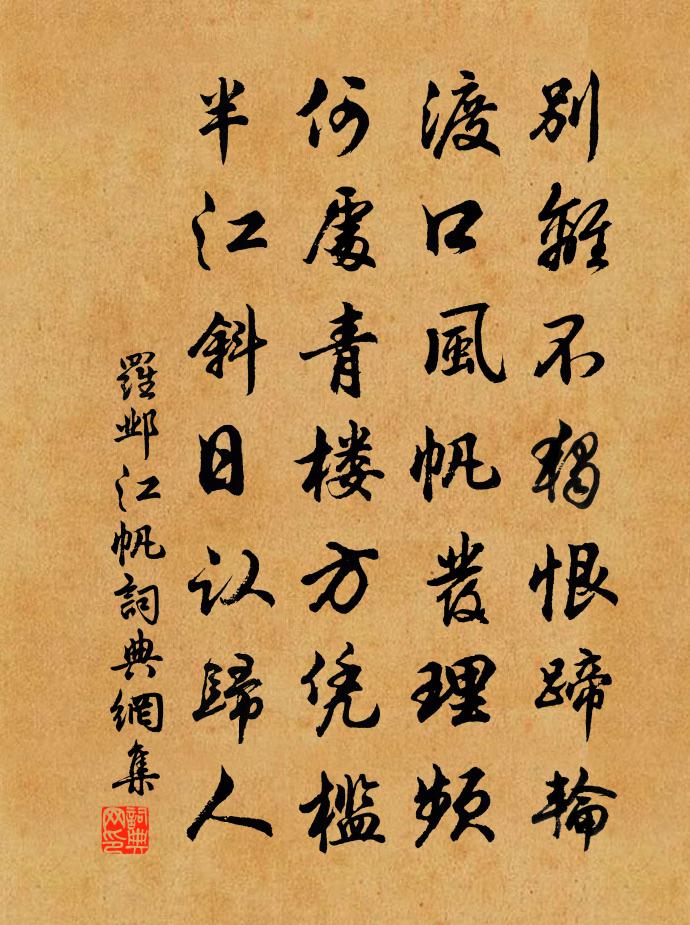 別離不獨恨蹄輪
渡口風帆發理頻
何處青楼方凭檻
半江斜日认歸人
羅邺江帆詞典網集
詞典网印